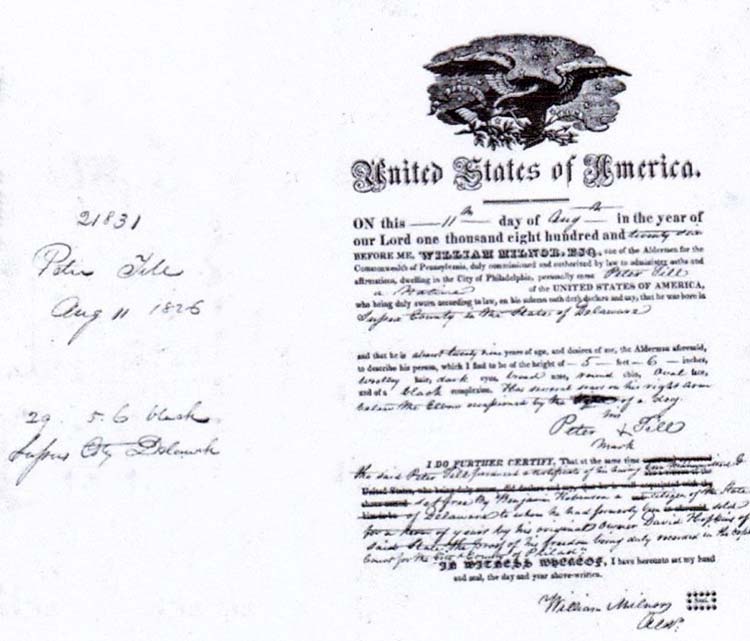 21831
Peter Till
Aug 11 1826
29 5.6 black
Sussex Cty Delaware
United States of America.
ON this 11th day of Aug in the year of
our Lord one thousand eight hundred and twenty six
BEFORE ME, WILLIAM MILNOR, ESQ. one of the Aldermen for the
Commonwealth of Pennsylvania, duly commissioned and authorised by law to administer oaths and
affirmations, dwelling in the City of Philadelphia, personally came Peter Till
a Native of the UNITED STATES OF AMERICA,
who being duly sworn according to law, on his solemn oath doth declare and say, that he was born in
Sussex County in the State of Delaware
and that he is about twenty nine years of age, and desires of me, the Alderman aforesaid,
to describe his person, which I find to be of the height of 5 feet 6 inches,
woolley hair, dark eyes, broad nose, round chin, oval face,
and of a black complexion. Has several scars on his right arm
below the Elbow occasioned by the of a dog.
his
Peter + Till
Mark
I DO FURTHER CERTIFY, That at the same time
the said Peter Till produced a certificate of his being
United States, who being duly
set free by Benjamin Robinson a citizen of the State
of Delaware to whom he had formerly been sold
for a term of years by his original owner David Hopkins of
said State, the proof of his freedom being duly recorded in the
Court for the City & County of Philada
IN WITNESS WHEREOF, I have hereunto set my hand
and seal, the day and year above-written.
William Milnor
Aldn.
Seal